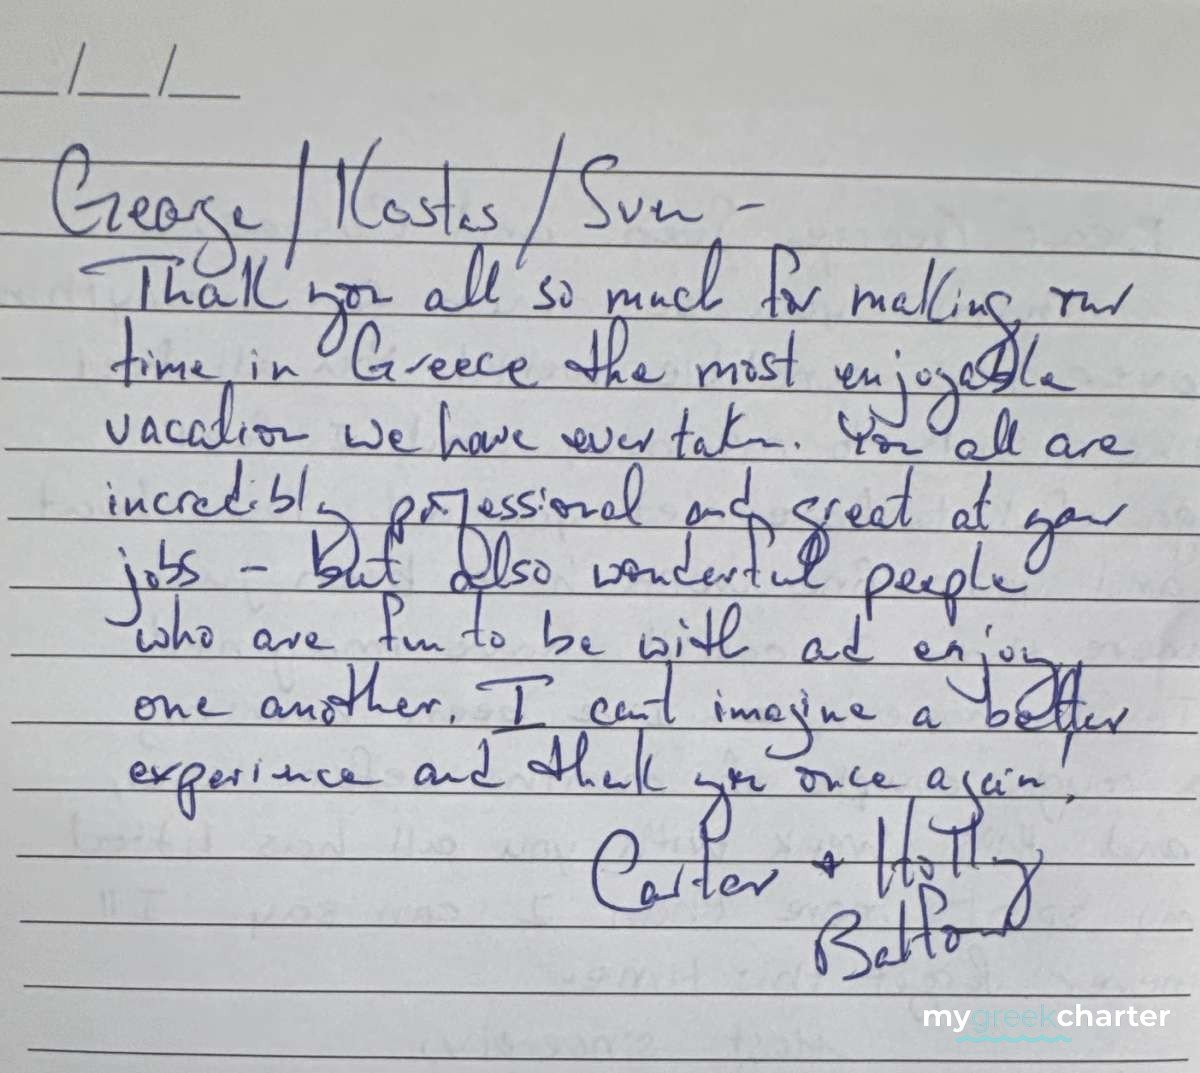 __/__/__
George/Kostas/Sven -
Thank you all so much for making our
time in Greece the most enjoyable
vacation we have ever taken. You all are
incredibly professional and great at your
jobs - but also wonderful people
who are fun to be with and enjoy
one another. I can't imagine a better
experience and thank you once again!
Carter + Holly
Balfour
mygreekcharter